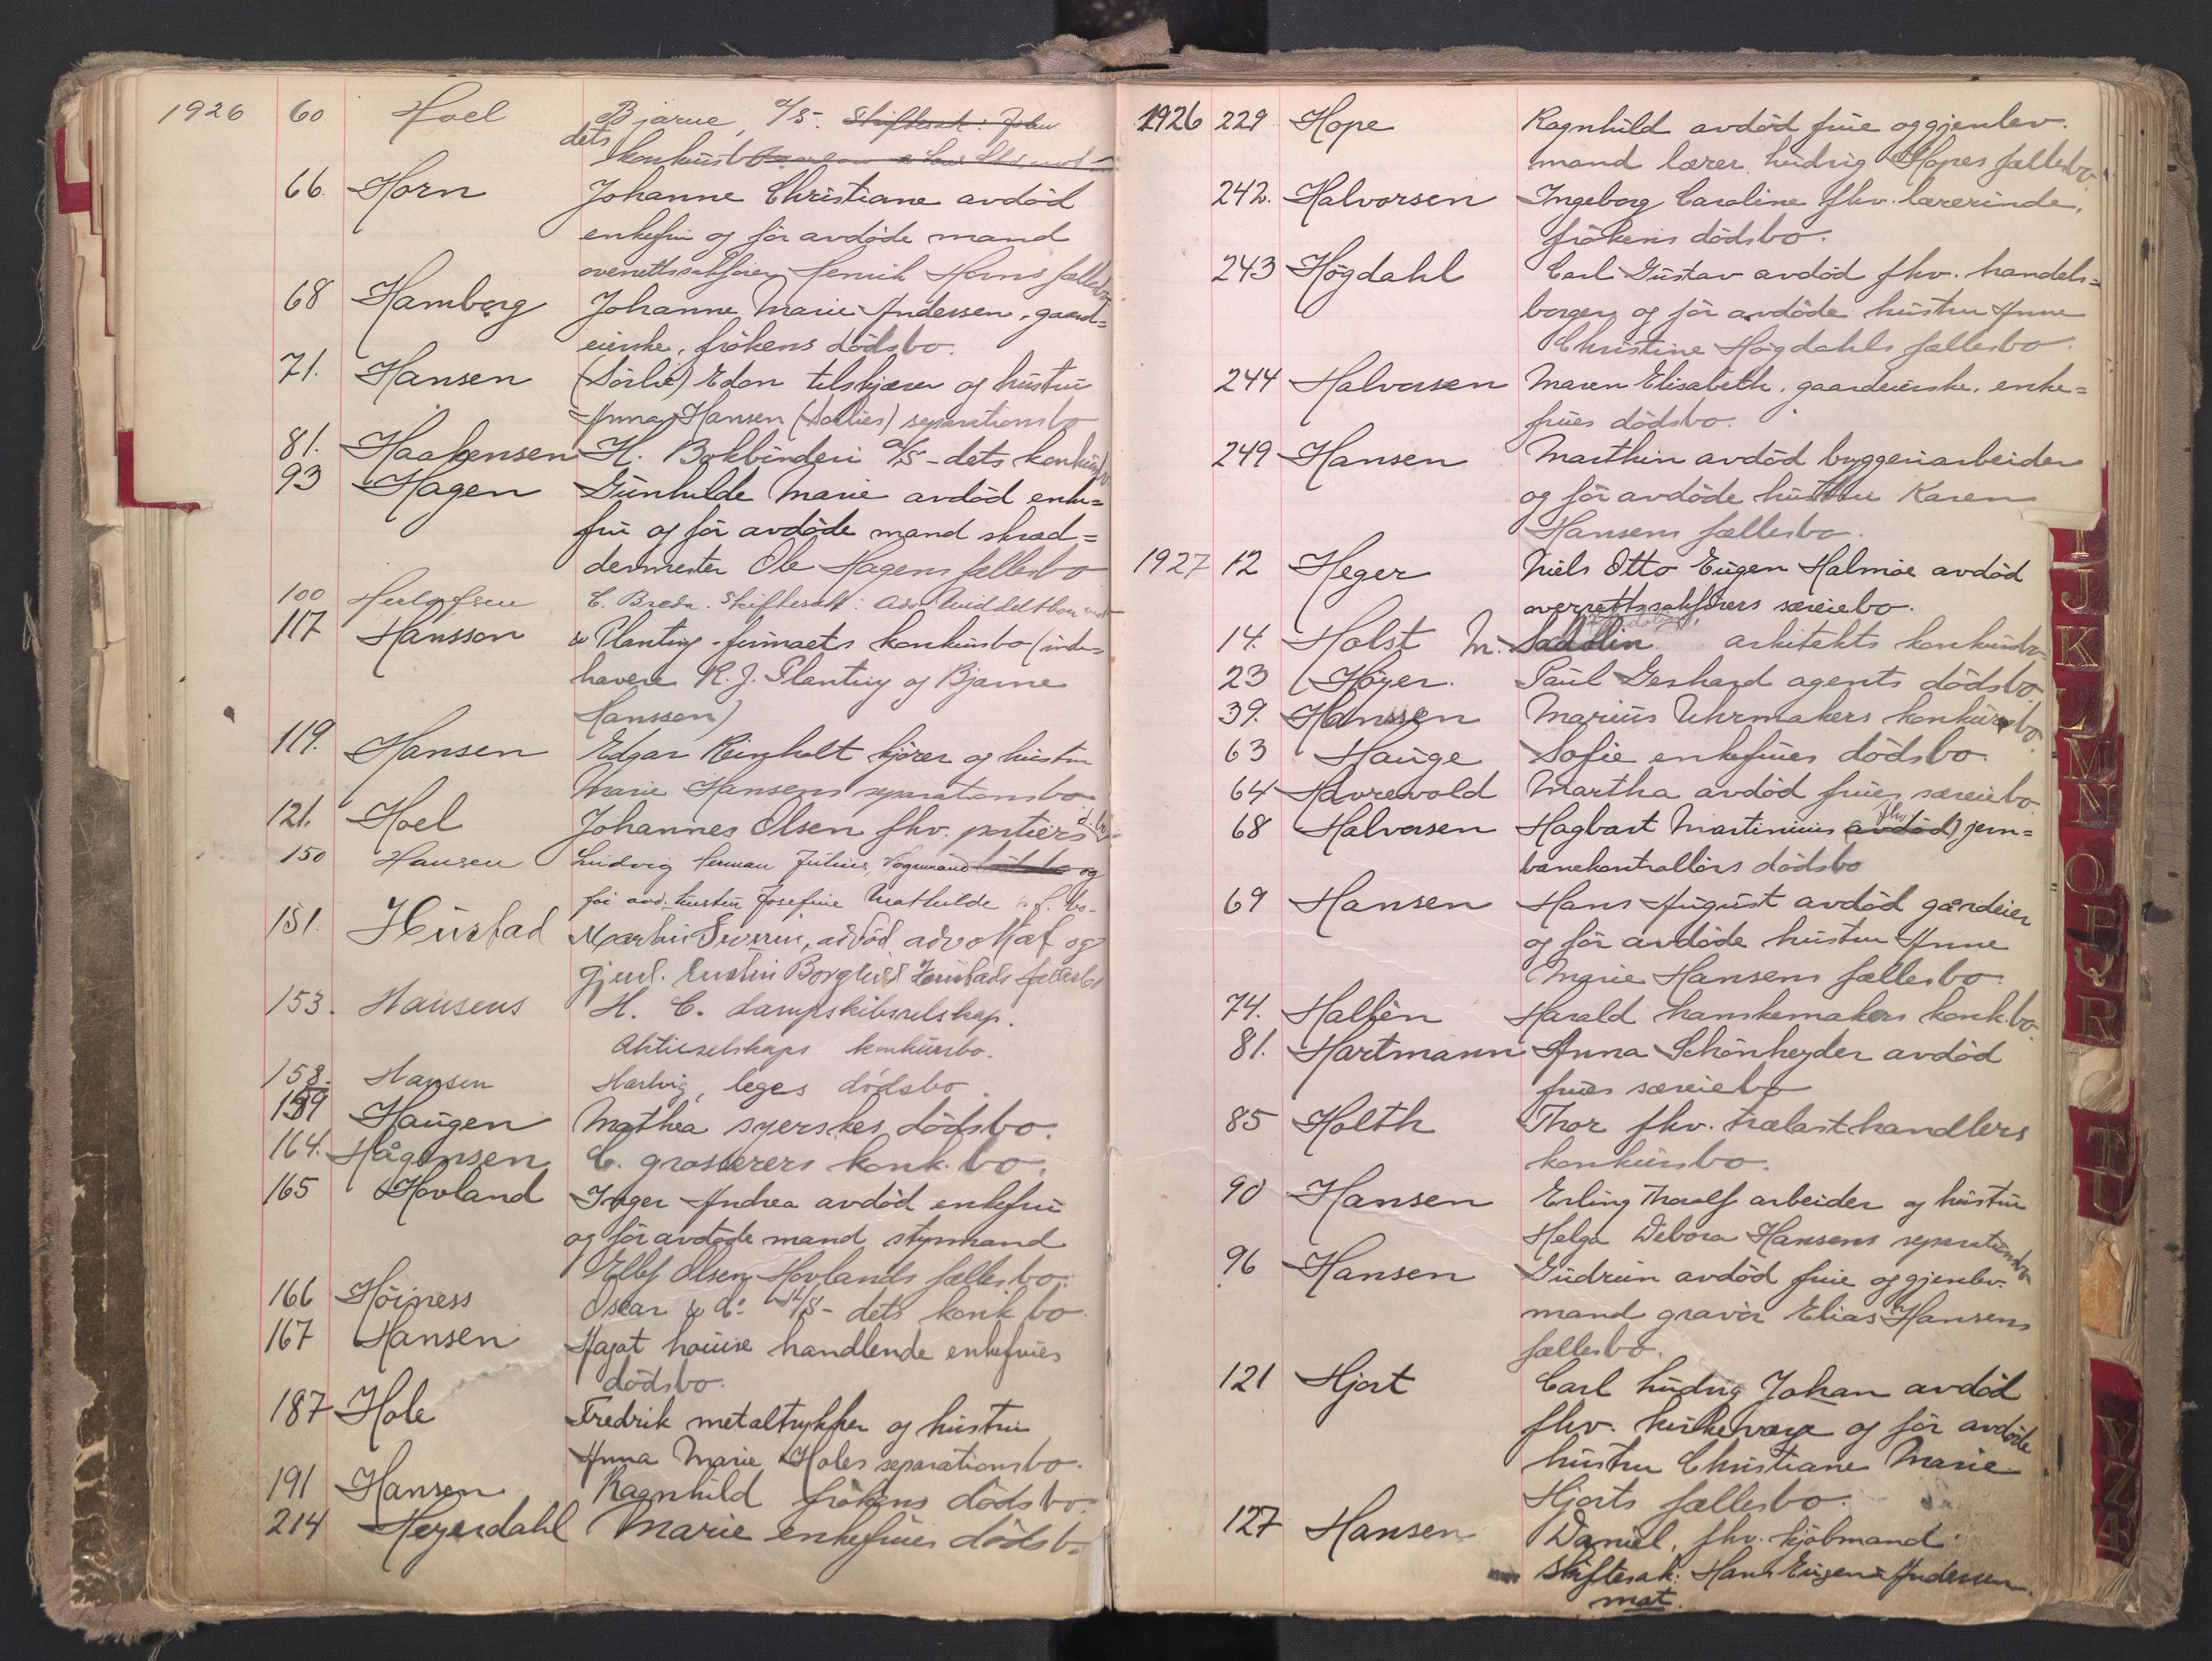 1926 60 Hoel Bjarne, A/S. Skiftesak: John
dets konkursbo
66. Horn Johanne Christiane avdöd
enkefru og för avdöde mand
overrettssakförer Henrik Horns fællesbo
68 Hamborg Johanne Marie Andersen, gaard=
eierske, frökens dödsbo.
71. Hansen (Sörlie) Edon tilskjærer og hustru
Anna Hansen (Sörlies) separationsbo
81. Haakensen H. Bokbinderi A/S - dets konkursbo
93 Hagen Gunhilde Marie avdöd enke=
fru og för avdöde mand skræd=
dermester Ole Hagens fællesbo
100 Herlofsen C. Breda. Skiftesak: Adv. Middelthon mot
117 Hansson & Planting - firmaets konkursbo (inde=
havere R. J. Planting og Bjarne
Hansson)
119. Hansen Edgar Reinholt kjörer og hustru
Marie Hansens separationsbo
121. Hoel Johannes Olsen fhv. portiers d.bo
150 Hansen Ludvig Herman Julius, Vognmand dödsbo og
för avd. hustru Josefine Mathilde s f. bo.
151. Hustad Martin Severin, avdöd advokat og
gjenl. Enstru Borghild Hustads fællesbo
153. Hansens H. C. dampskibsselskap.
Aktieselskaps konkursbo.
158. Hansen Hartvig, leges dödsbo.
159 Haugen Mathea syerskes dödsbo.
164. Hågensen C. grosserers konk. bo.
165 Hovland Inger Andrea avdöd enkefru
og för avdöde mand styrmand
Ellef Olsen Hovlands fællesbo.
166 Höiness Oscar & Co A/S - dets konk bo.
167 Hansen Hagat Louise handlende enkefrues
dödsbo.
187 Hole Fredrik metaltrykker og hustru
Anna Marie Holes separationsbo.
191 Hansen Ragnhild frökens dödsbo.
214 Heyerdahl Marie enkefrues dödsbo
1926 229 Hope Ragnhild avdöd frue og gjenlev.
mand lærer Ludvig Hopes fællesbo
242. Halvorsen Ingeborg Caroline fhv. lærerinde,
frökens dödsbo.
243 Högdahl Carl Gustav avdöd fhv. handels=
borger og för avdöde hustru Anne
Christine Högdahls fællesbo.
244 Halvorsen Maren Elisabeth, gaardeierske, enke=
frues dödsbo.
249 Hansen Marthin avdöd byggeriarbeider
og för avdöde hustru Karen
Hansens fællesbo.
1927 12 Heger Niels Otto Eugen Halmöe avdöd
overrettssakförers særeiebo.
14. Holst M. arkitekts konkursbo
23 Höyer. Paul Gerhard agents dödsbo
39. Hanssen Marius Uhrmakers konkursbo
63 Hauge Sofie enkefrues dödsbo.
64 Havrevold Martha avdöd frues særeiebo
68 Halvorsen Hagbart Martinius avdöd fhv jern=
banekontrollörs dödsbo
69 Hansen Hans August avdöd gårdeier
og för avdöde hustru Anne
Marie Hansens fællesbo.
74. Hallén Harald hanskemakers konk.bo
81. Hartmann Anna Schönheyder avdöd
frues særeiebo
85 Holth Thor fhv. trælasthandlers
konkursbo.
90 Hansen Erling Thoralf arbeider og hustru
Helga Debora Hansens separationsbo
96 Hansen Gudrun avdöd frue og gjenlev.
mand gravör Elias Hansens
fællesbo.
121 Hjort Carl Ludvig Johan avdöd
fhv. kirkeverge og för avdöde
hustru Christiane Marie
Hjorts fællesbo.
127 Hansen Daniel, fhv. kjöbmand
Skiftesak: Hans Eugen Andersen
mot.
I
J
K
L
M
N
O
P
Q
R
T
U
V
Z
Æ